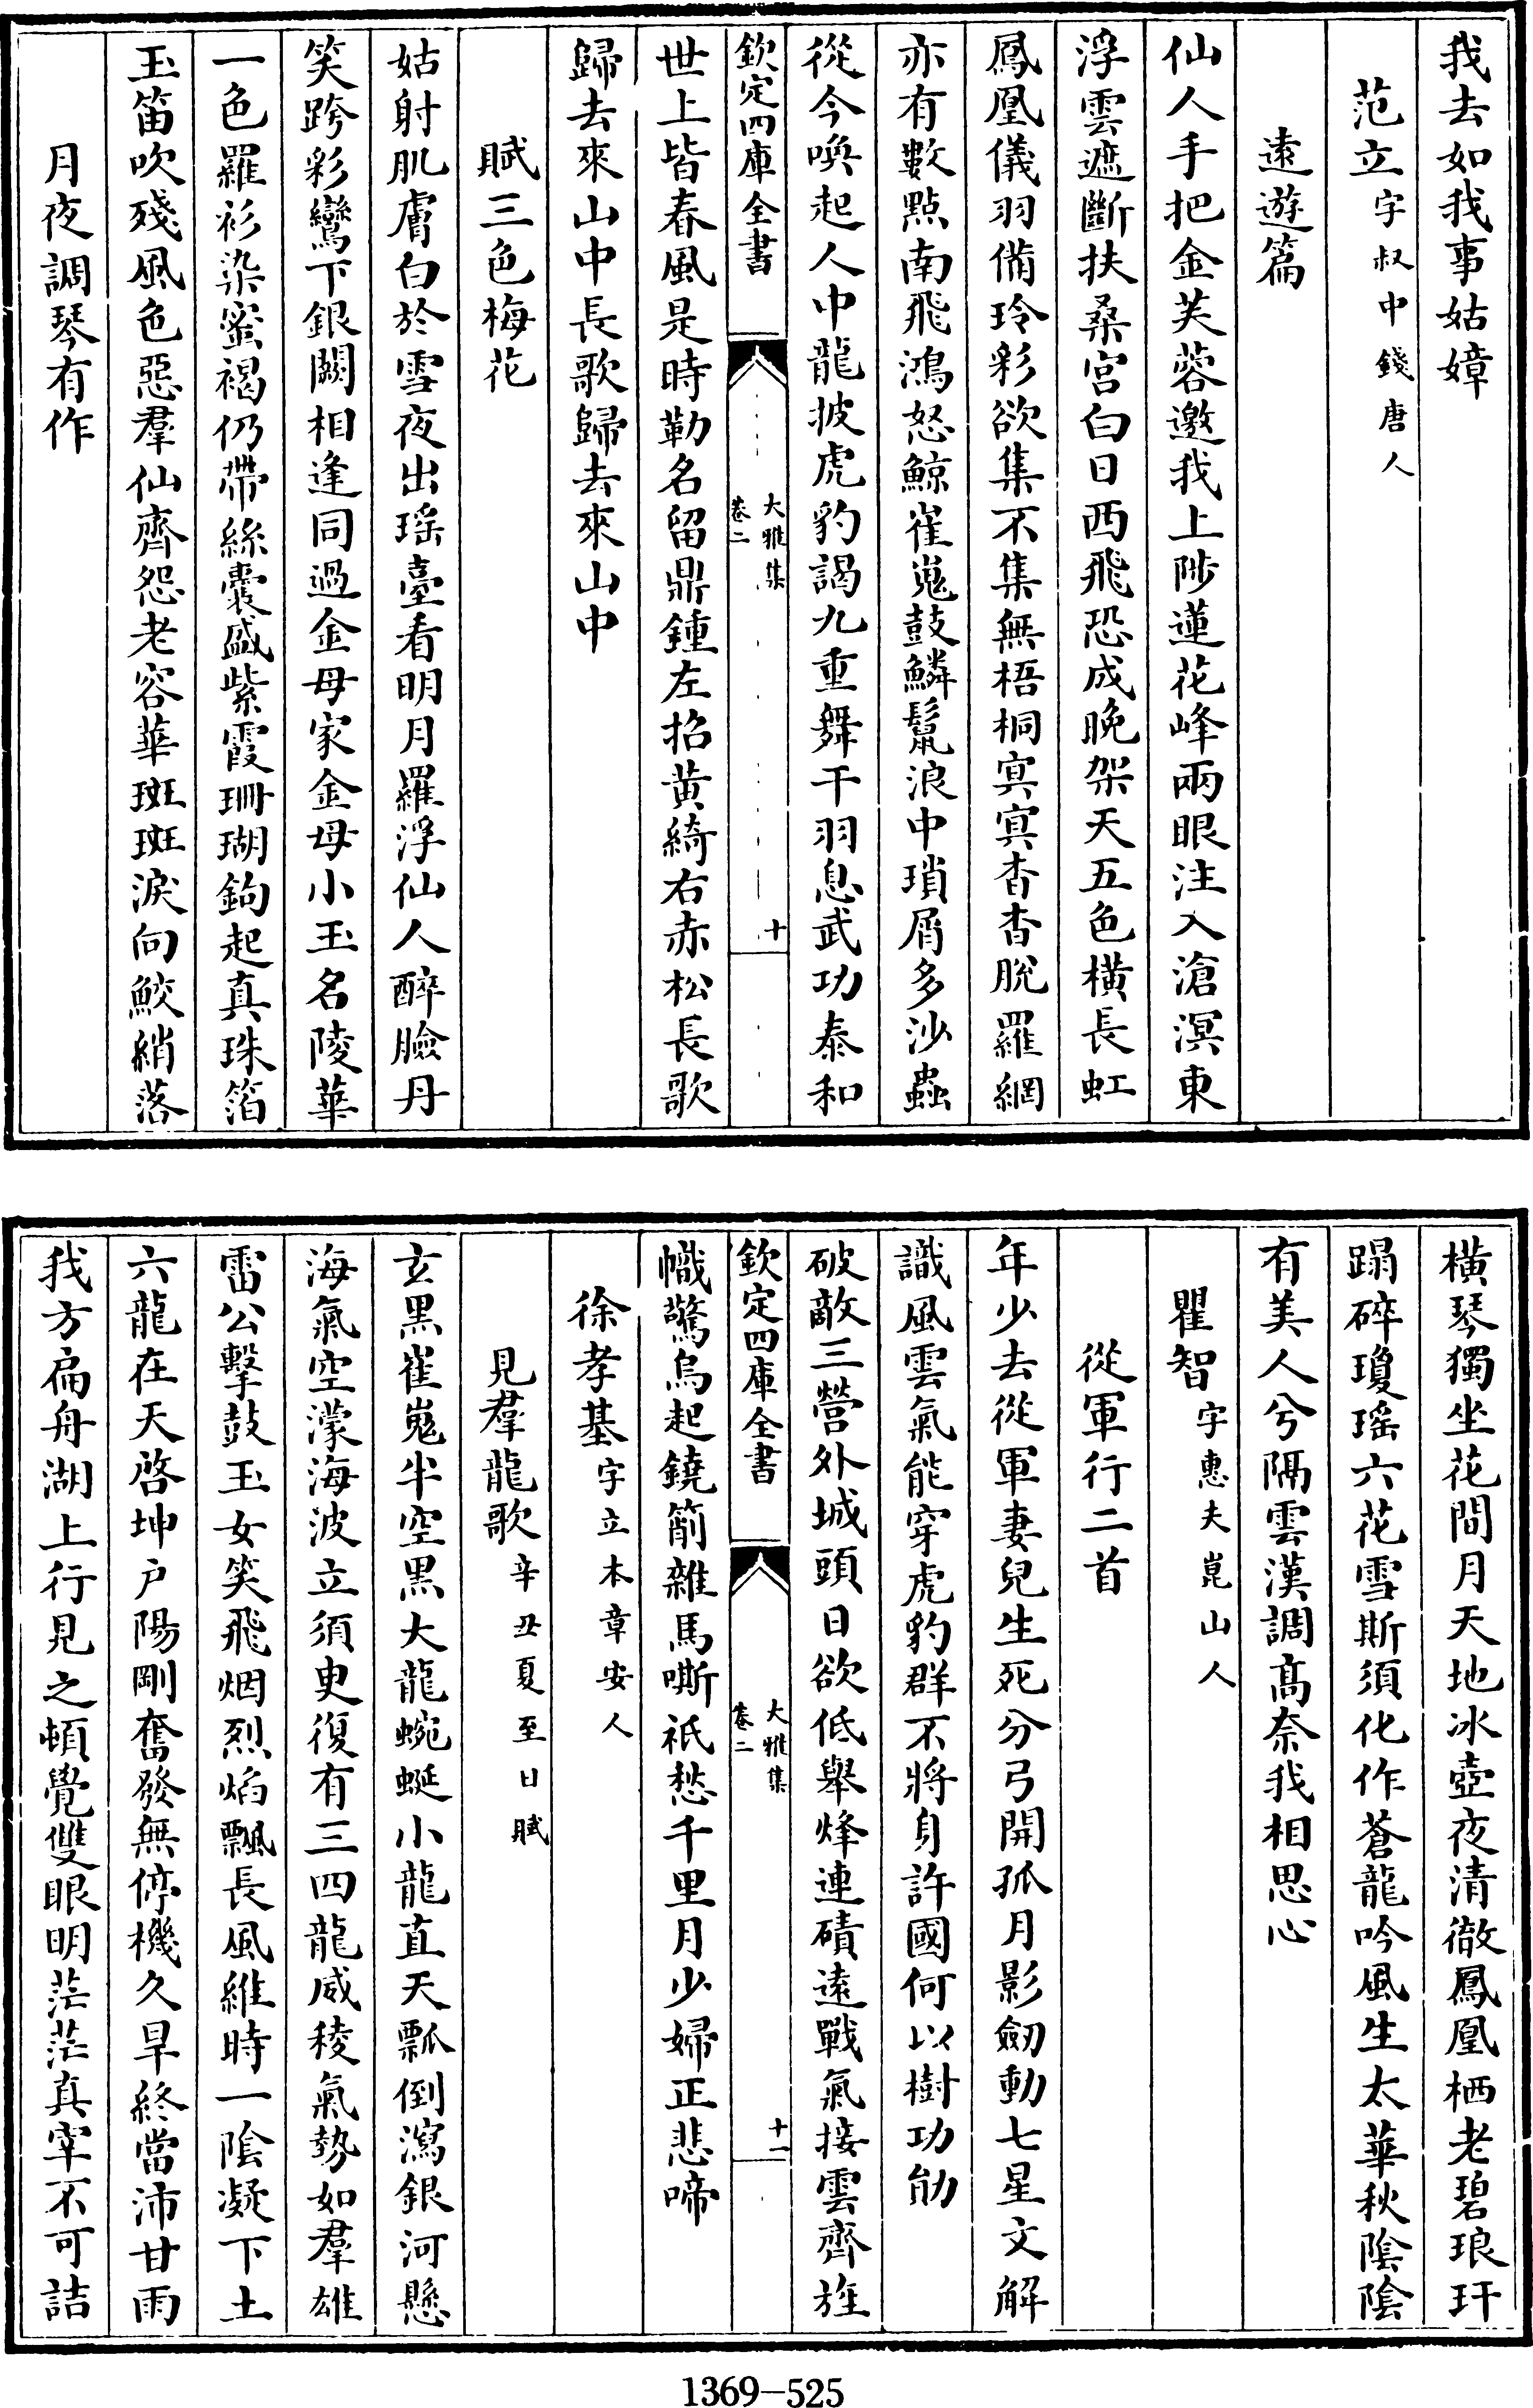 我去如我事姑嫜
范立字叔中錢唐人
遠遊篇
仙人手把金芙蓉邀我上陟蓮花峰兩眼注入滄溟東
浮雲遮斷扶桑宮白日西飛恐成晚架天五色橫長虹
鳳凰儀羽備玲彩欲集不集無梧桐㝠㝠杳杳脫羅網
亦有數點南飛鴻怒鯨崔嵬鼓鱗鬛浪中瑣屑多沙蟲
從今喚起人中龍披虎豹謁九重舞干羽息武功泰和
欽定四庫全書
大雅集
卷二
十
世上皆春風是時勒名留鼎鍾左招黄綺右赤松長歌
歸去來山中長歌歸去來山中
賦三色梅花
姑射肌膚白於雪夜出瑶臺看明月羅浮仙人醉臉丹
笑跨彩鸞下銀闕相逢同過金母家金母小玉名陵華
一色羅衫染蜜褐仍帶絲囊盛紫霞珊瑚鉤起真珠箔
玉笛吹殘風色惡羣仙齊怨老容華斑斑淚向鮫綃落
月夜調琴有作
橫琴獨坐花間月天地冰壺夜清徹鳳凰栖老碧琅玕
蹋碎瓊瑶六花雪斯須化作蒼龍吟風生太華秋陰陰
有美人兮隔雲漢調髙奈我相思心
瞿智字惠夫崑山人
從軍行二首
年少去從軍妻兒生死分弓開孤月影劒動七星文解
識風雲氣能穿虎豹群不將身許國何以樹功勛
破敵三營外城頭日欲低舉烽連磧遠戰氣接雲齊旌
欽定四庫全書
大雅集
卷二
十一
幟驚烏起鐃簫雜馬嘶祇愁千里月少婦正悲啼
徐孝基字立本章安人
見羣龍歌辛丑夏至日賦
玄黑崔嵬半空黑大龍蜿蜒小龍直天瓢倒瀉銀河懸
海氣空濛海波立須臾復有三四龍威稜氣勢如羣雄
雷公擊鼓玉女笑飛烟烈焰飄長風維時一陰凝下土
六龍在天啓坤户陽剛奮發無停機久旱終當沛甘雨
我方扁舟湖上行見之頓覺雙眼明茫茫真宰不可詰
1369—525